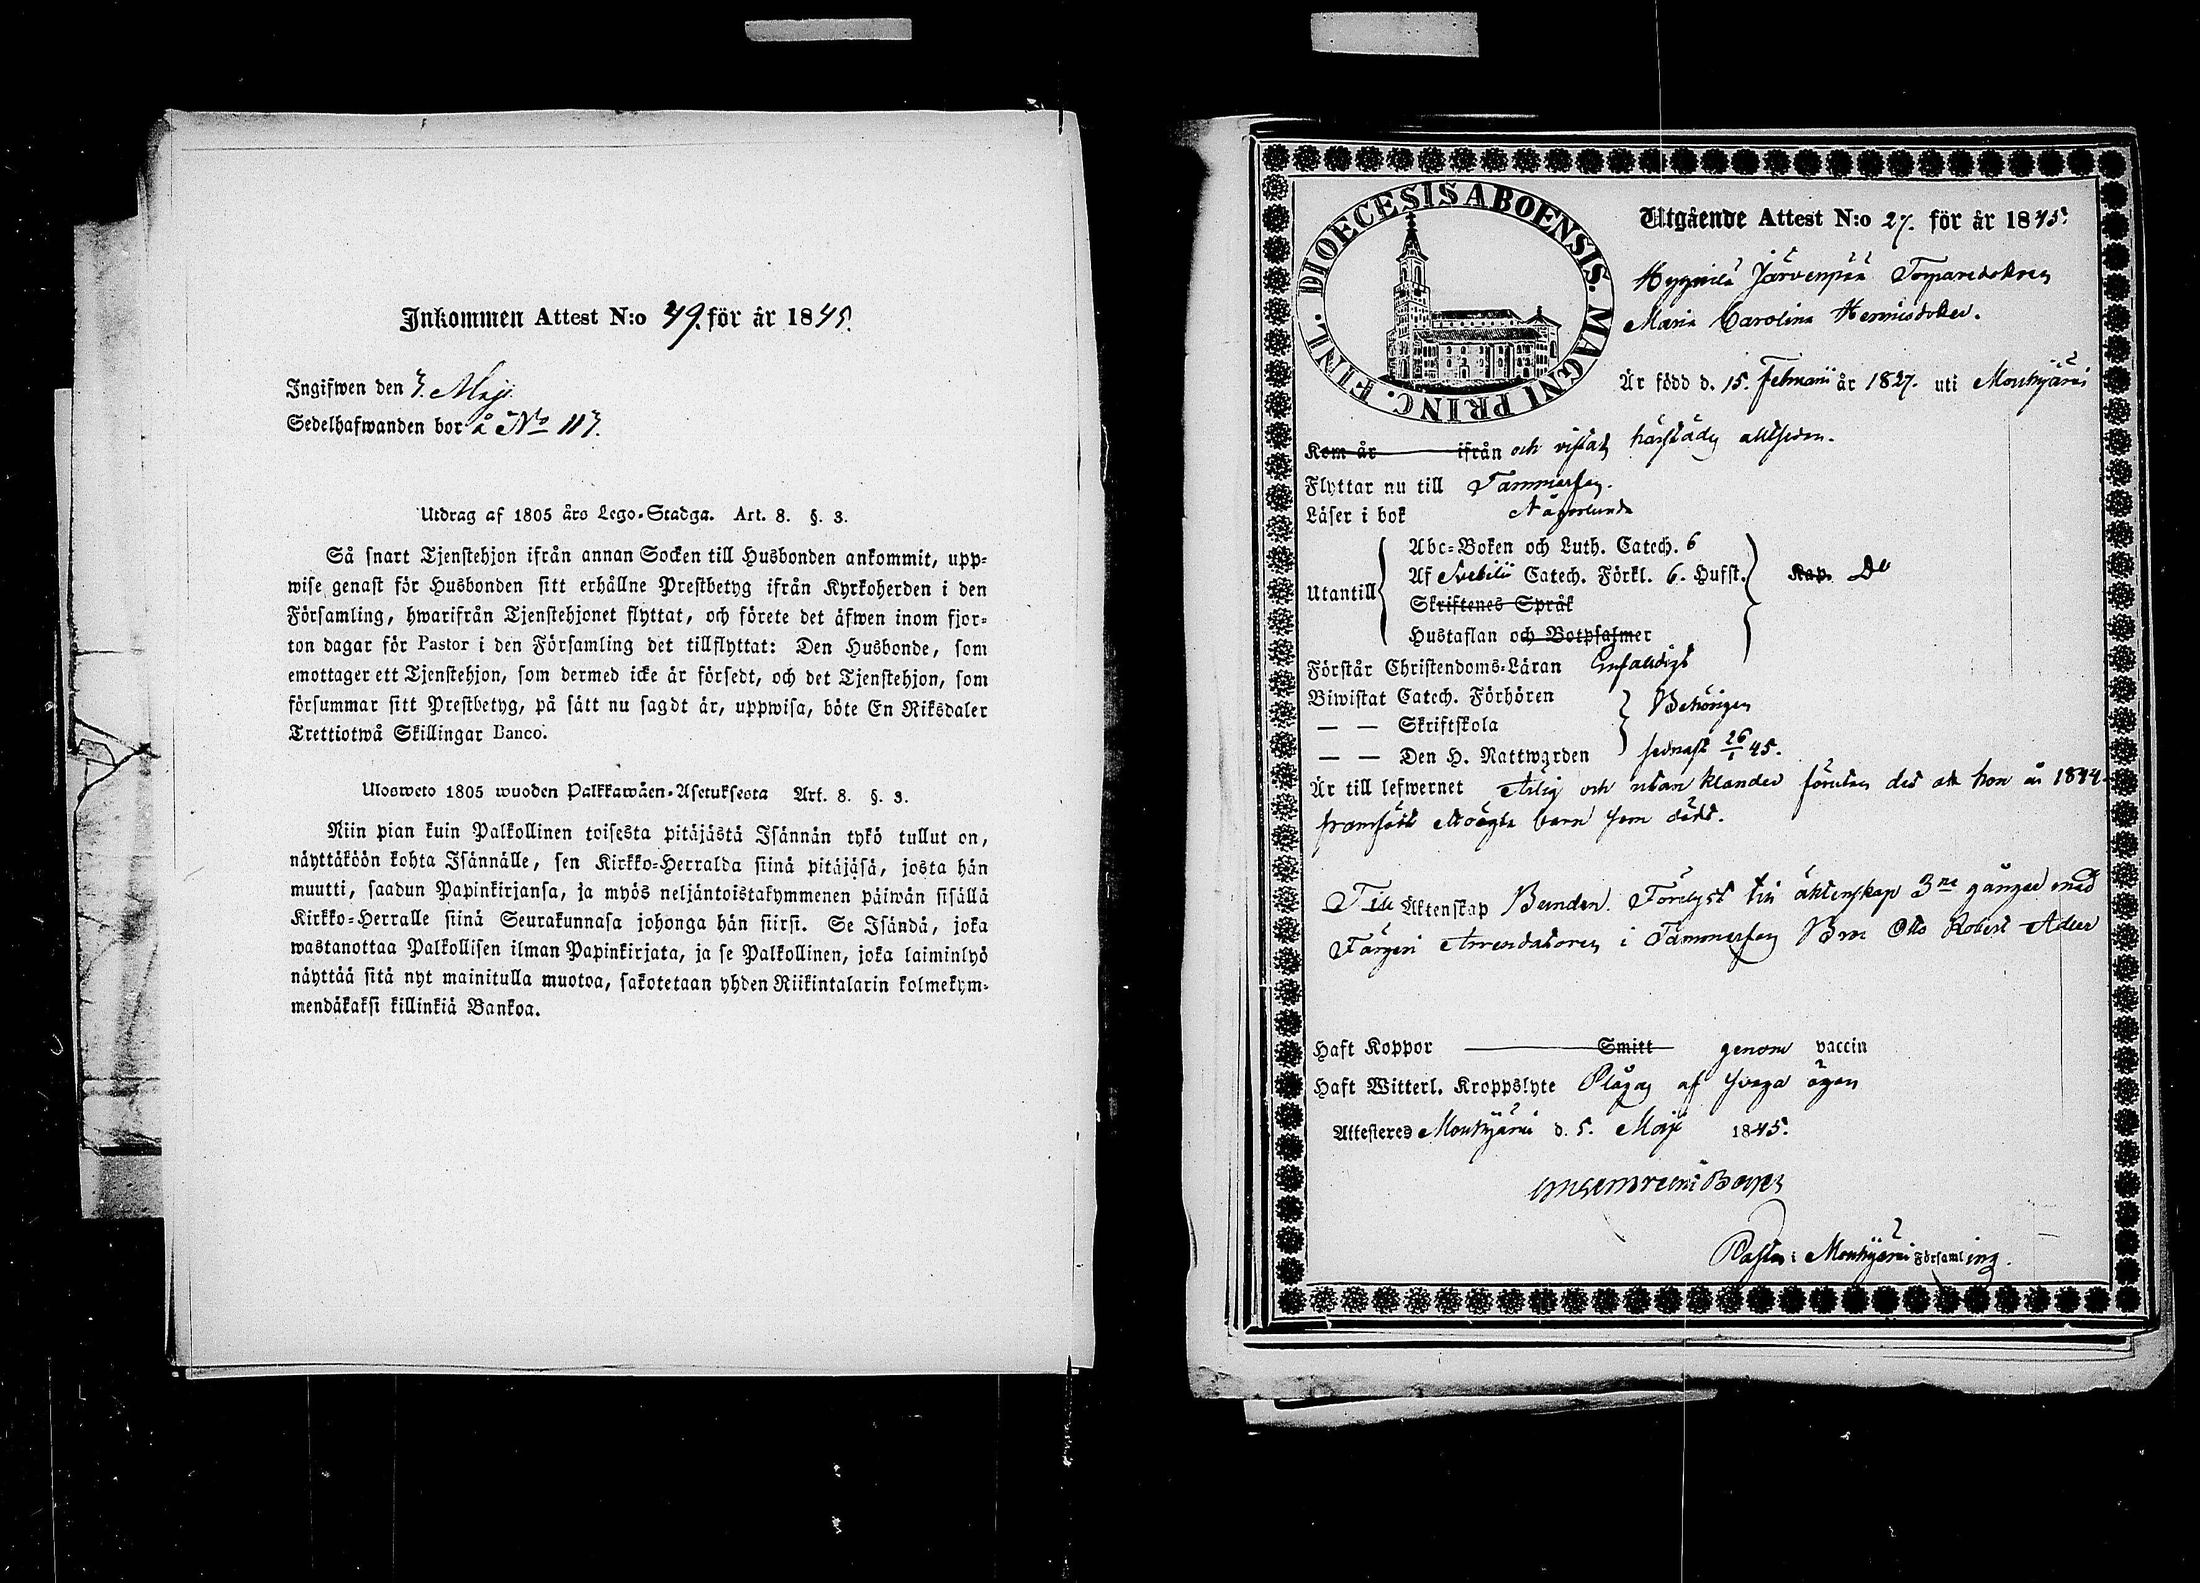 Inkommen Attest N:o 49. för år 1845.
Ingifwen den 7. Maji.
Sedelhafwanden bor å No 117.
Utdrag af 1805 års Lego-Stadga. Art. 8. §. 3.
Så snart Tjenstehjon ifrån annan Socken till Husbonden ankommit, upp-
wise genast för Husbonden sitt erhållne Prestbetyg ifrån Kyrkoherden i den
Församling, hwarifrån Tjenstehjonet flyttat, och förete det äfwen inom fjor-
ton dagar för Pastor i den Församling det tillflyttat: Den Husbonde, som
emottager ett Tjenstehjon, som dermed icke är försedt, och det Tjenstehjon, som
försummar sitt Prestbetyg, på sätt nu sagdt är, uppwisa, böte En Riksdaler
Trettiotwå Skillingar Banco.
Ulosweto 1805 wuoden Palkkawäen-Asetuksesta Art. 8. §. 3.
Niin pian kuin Palkollinen toisesta pitäjästä Isännän tykö tullut on,
näyttäköön kohta Isännälle, sen Kirkko-Herralda siinä pitäjäsä, josta hän
muutti, saadun Papinkirjansa, ja myös neljäntoistakymmenen päiwän sisällä
Kirkko-Herralle siinä Seurakunnasa johonga hän siirsi. Se Isändä, joka
wastanottaa Palkollisen ilman Papinkirjata, ja se Palkollinen, joka laiminlyö
näyttää sitä nyt mainitulla muotoa, sakotetaan yhden Riikintalarin kolmekym-
mendäkaksi killinkiä Bankoa.
DIOECESIS ABOENSIS. MAGNI PRINC. FINL.
Utgående Attest N:o 27. för år 1845.
Hyynilä Järvenpää Torparedottren
Maria Carolina Henricsdotter.
Är född d. 15. Februarii år 1827. uti Mouhijärvi
Kom år ifrån och vistats härstädes alltsedan.
Flyttar nu till Tammerfors.
Läser i bok Någorlunda
Utantill
Abc-Boken och Luth. Catech. 6
Af Svebilii Catech. Förkl. 6. Husst.
Skriftenes Språk
Hustaflan och Botpsalmer
Kap. Do
Förstår Christendoms-Läran Enfaldigt
Biwistat Catech. Förhören
— — Skriftskola
— — Den H. Nattwarden
Behörigen
sednast 26/1 45.
Är till lefwernet Ärlig och utan klander förutan det att hon år 1844
framfödt oäkta barn som dödt.
Till Äktenskap Bunden. Förelyst till äktenskap 3ne gånger med
Färgeri Arrendatoren i Tammerfors Otto Robert Adler
Haft Koppor Smitt genom vaccin
Haft Witterl. Kroppslyte Plågas af svaga ögon
Attesteres Mouhijärvi d. 5. Maji 1845.
Pastor i Mouhijärvi Församling.